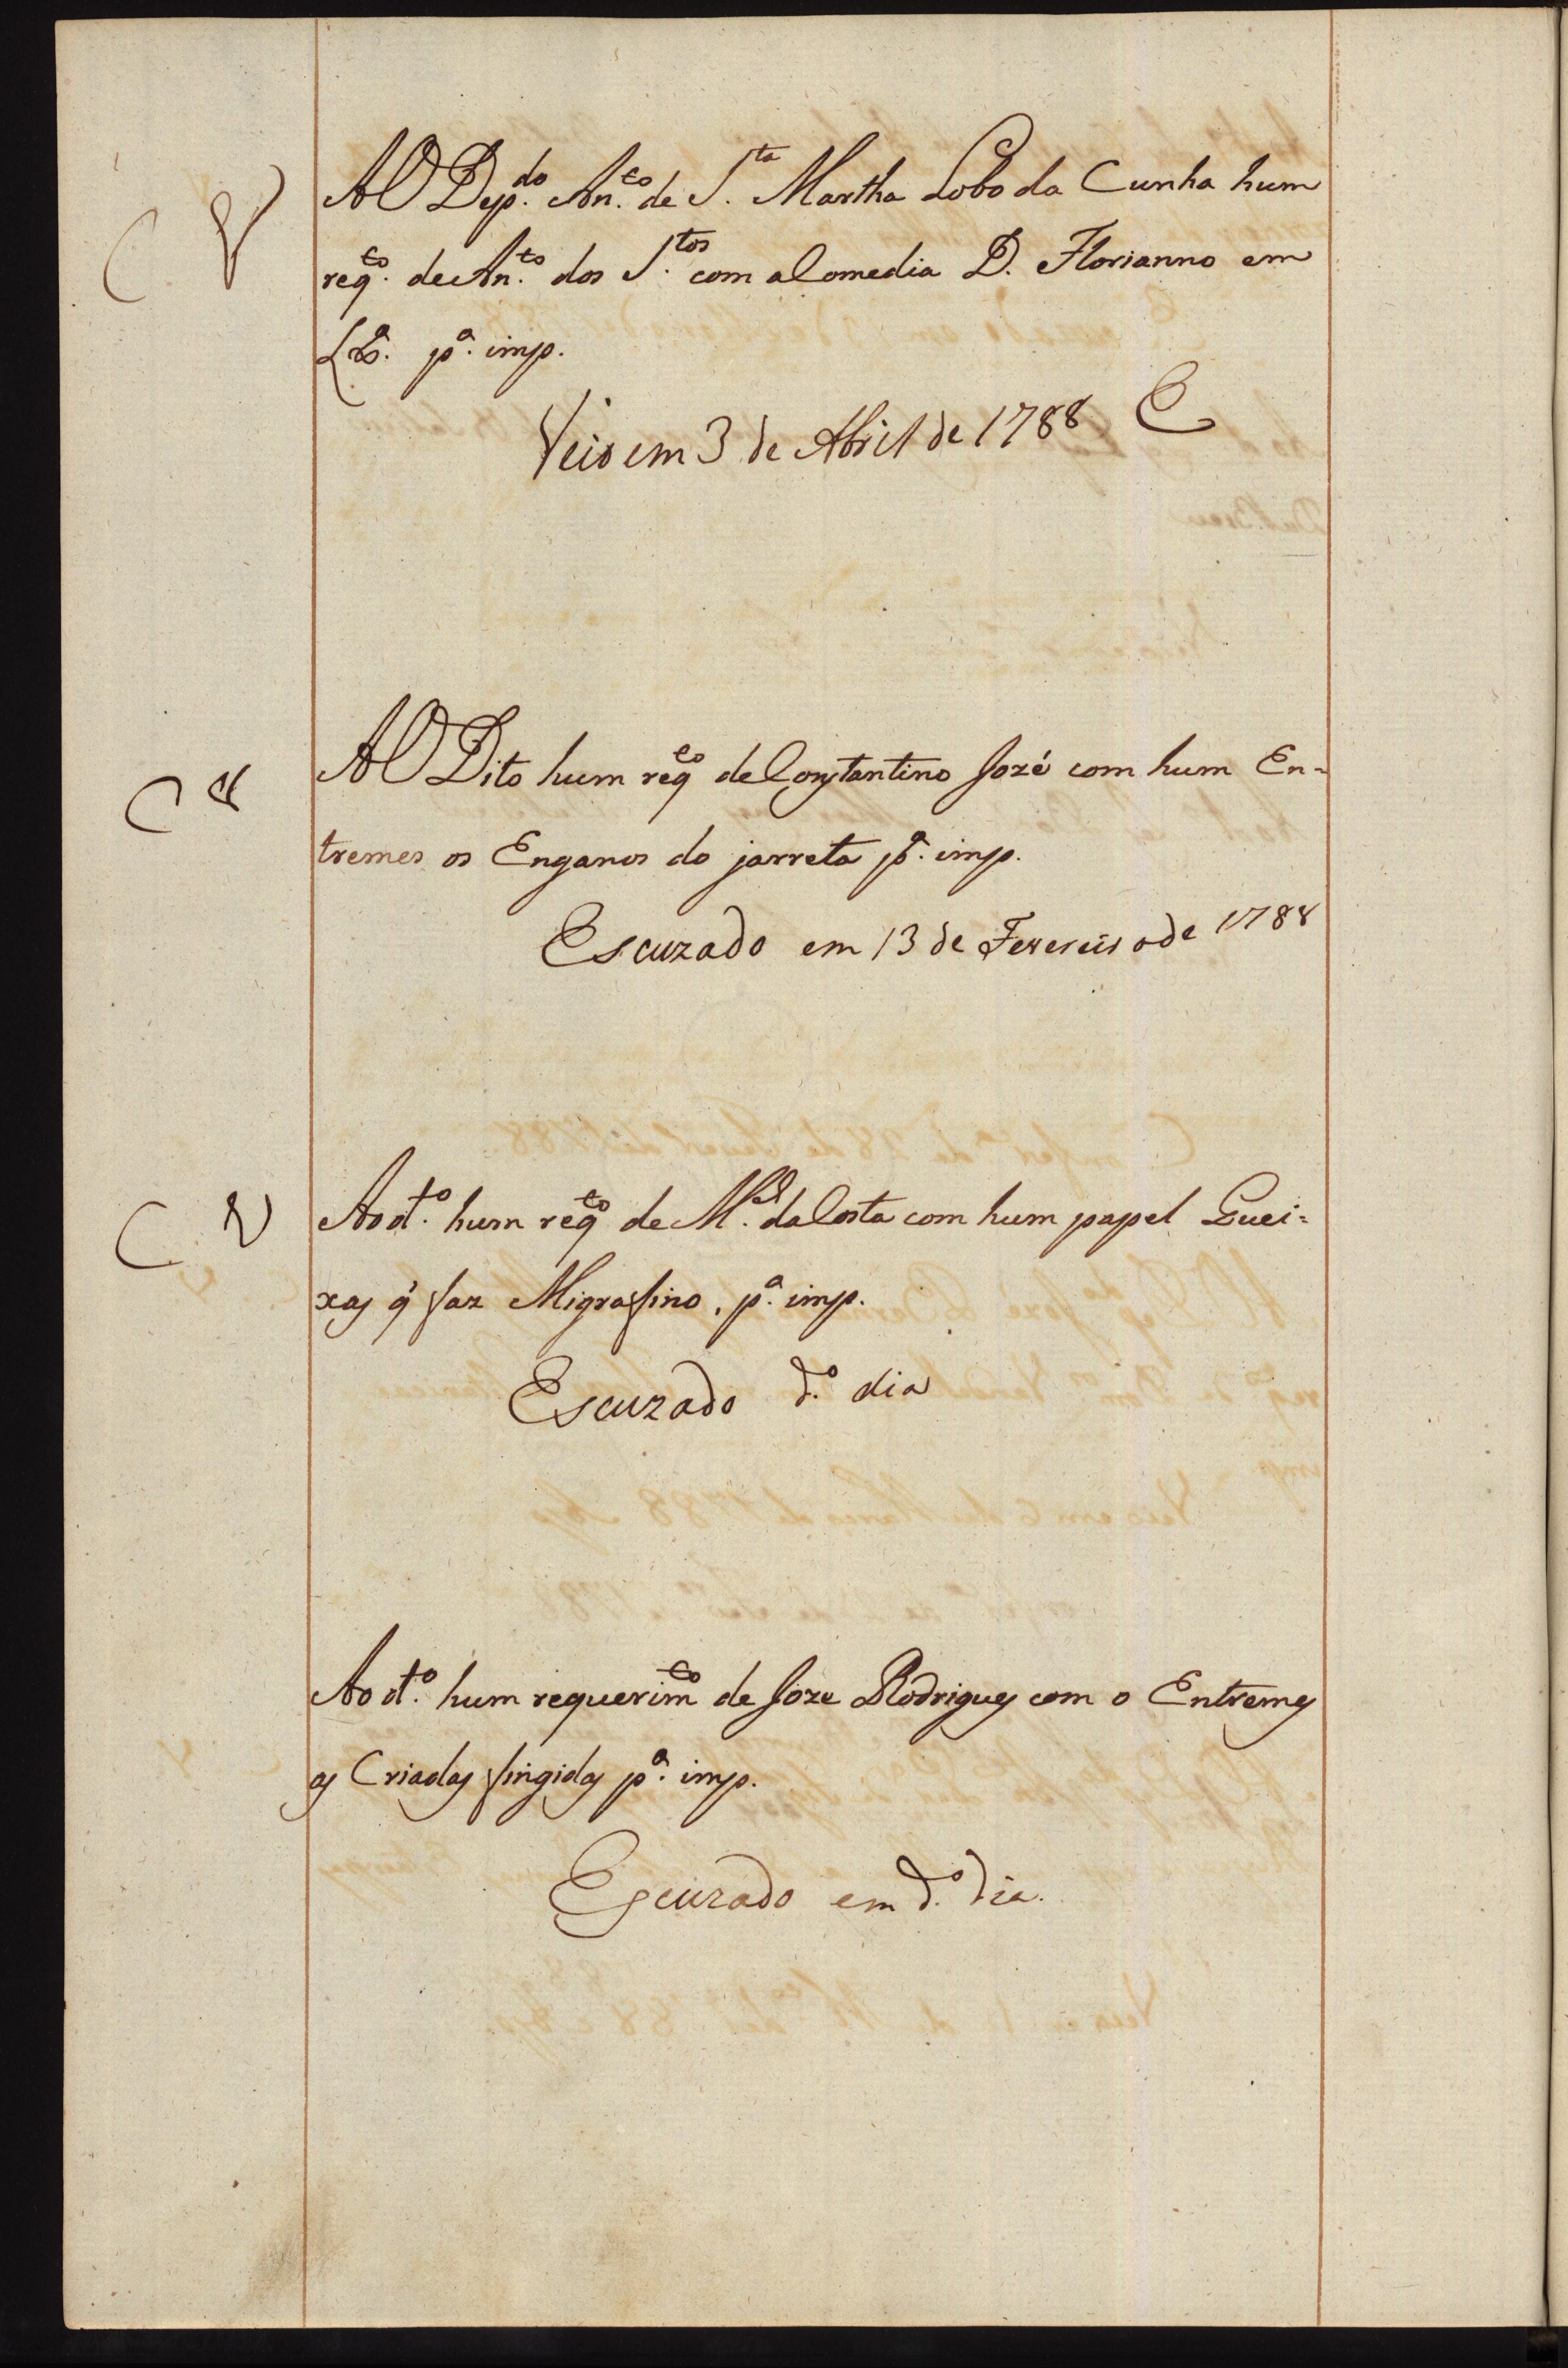 AO Dep.do An.to de S.ta Martha Lobo da Cunha hum
req.to de An.to dos S.tos com a Comedia D. Florianno em
Lx.ª p.ª imp.
Veio em 3 de Abril de 1788 C
AO Dito hum reqto de Constantino Jozé com hum En-
tremes os Enganos do jarreta p.ª imp.
Escuzado em 13 de Fevereiro de 1788
Ao d.to hum reqto de M.el da Costa com hum papel Quei-
xas q̃ faz Migrassino, p.ª imp.
Escuzado d.o dia
Ao d.to hum requerimto de Joze Rodrigues com o Entremes
as Criadas fingidas p.ª imp.
Escuzado em d.o dia.